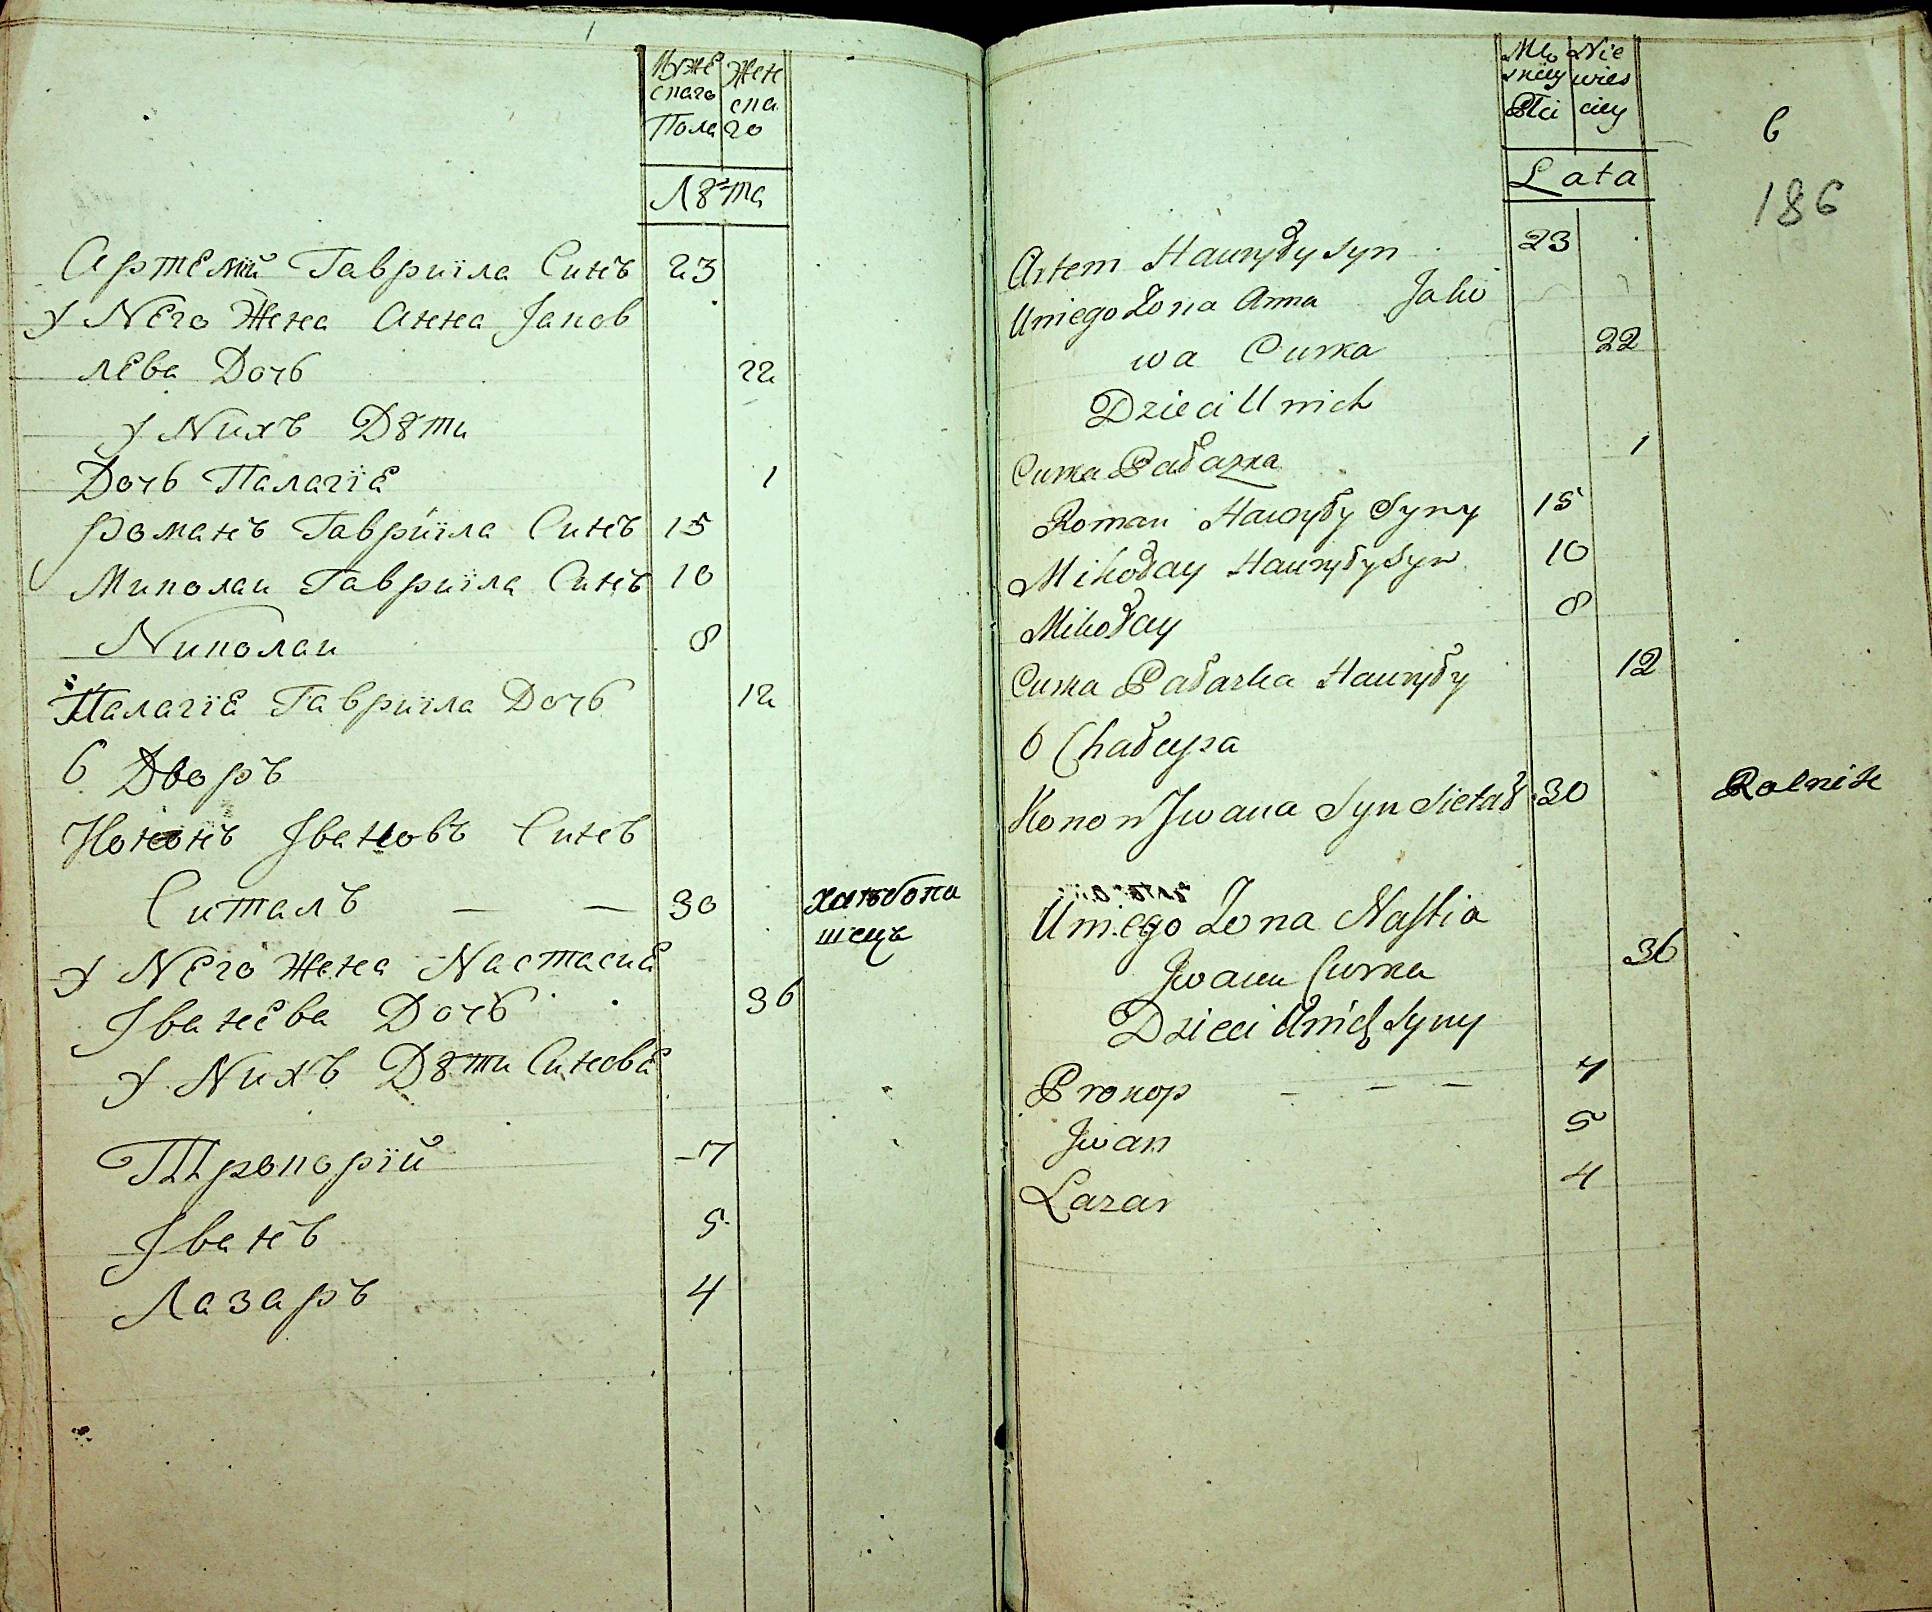 Мужескаго Пола
Женскаго
Лѣта
Артемій Гавриіла Синъ 23
у Него Жена Анна Іаков
лева Дочь 22
у Нихъ Дѣти
Дочь Палагіе 1
Романъ Гавриіла Синъ 15
Миколаи Гавриіла Синъ 10
Николаи 8
Палагіе Гавриіла Дочь 12
6 Дворъ
Кононъ Івановъ Синъ
Ситалъ — — 30 хлѣбопа
шецъ
у Него Жена Настасие
Іванева Дочь 36
у Нихъ Дѣти Синове
Прокопій 7
Іванъ 5
Лазаръ 4
Męskiey Płci
Niewiesciey
Lata
6
186
Artem Hawryły syn 23
U niego Żona Anna Jako
wa Curka 22
Dzieci U nich
Curka Pałazka 1
Roman Hawryły Syny 15
Mikołay Hawryły Syn 10
Mikołay 8
Curka Pałazka Hawryły 12
6 Chałupa
Konon Jwana Syn Sietał 30 Rolnik
U niego Żona Nastia
Jwana Curka 36
Dzieci U nich Syny
Prokop — — — 7
Jwan 5
Lazar 4